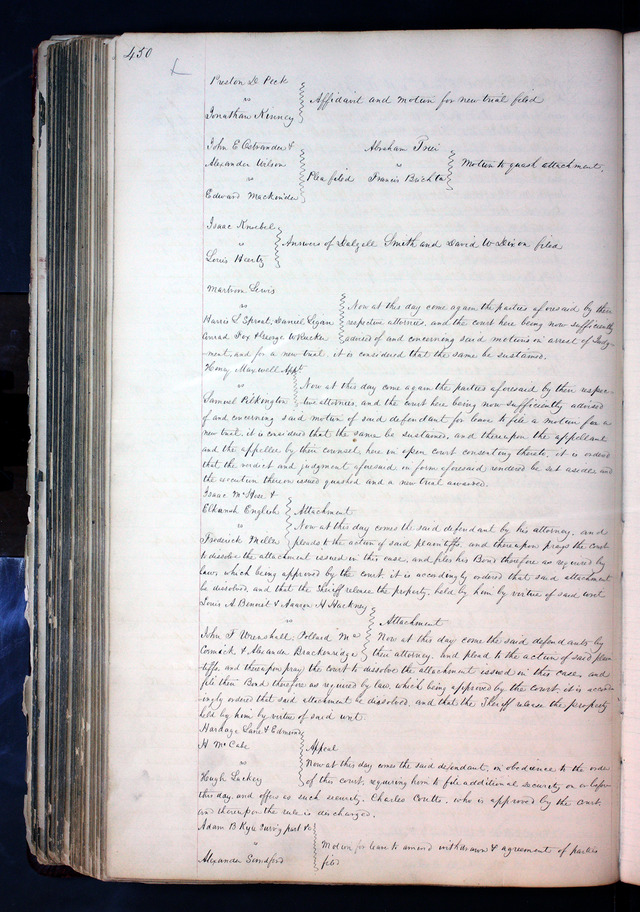 450
Preston D. Peck
vs
Jonathan Kinney
Affidavit and motion for new trial filed
John E Ostrander &
Alexander Wilson
vs
Edward Mackinder
Plea filed
Abraham
vs
Francis Brichta
Motion to quash attachment.
Isaac Knobel
vs
Louis Heertz
Answers of Dalzell Smith and David W Dixon filed
Martoon Lewis
vs
Harris L Sproat, Daniel Ligan
Conrad Fox & George W Rucker
Now at this day come again the parties aforesaid by their
respective attornies, and the court here being now sufficiently
advised of and concerning said motions in arrest of Judg-
ment, and for a new trial, it is considered that the same be sustained.
Henry Maxwell Appt
vs
Samuel Pilkington
Now at this day come again the parties aforesaid by their respec-
tive attornies, and the court here being now sufficiently advised
of and concerning said motion of said defendant for leave to file a motion for a
new trial, it is considered that the same be sustained, and thereupon the appellant
and the appellee by their counsel, here in open court consenting thereto, it is ordered
that the verdict and judgment aforesaid in form aforesaid rendered be set aside and
the execution thereon issued quashed and a new trial awarded.
Isaac McHose &
Elkanah English
vs
Frederick Miller
Attachment
Now at this day comes the said defendant by his attorney, and
pleads to the action of said plaintiffs, and thereupon prays the court
to dissolve the attachment issued in this case, and files his Bond therefore as required by
law, which being approved by the court, it is accordingly ordered that said attachment
be dissolved, and that the Sheriff release the property, held by him by virtue of said writ
Louis A Benoist & Aaron H Hackney
vs
John T Wrenshall, Pollard Mc
Cormick & Alexander Brackenridge
Attachment
Now at this day come the said defendants by
their attorney, and plead to the action of said plain-
tiffs, and thereupon pray the court to dissolve the attachment issued in this case, and
file their Bond therefore as required by law, which being approved by the court, it is accor-
dingly ordered that said attachment be dissolved, and that the Sheriff release the property
held by him by virtue of said writ.
Hardage Lane & Edmund
H McCabe
vs
Hugh Lackey
Appeal
Now at this day comes the said defendant, in obedience to the order
of this court, requiring him to file additional security on or before
this day, and offers as such security, Charles Coutts, who is approved by the court,
and thereupon the rule is discharged.
Adam B Kyle Surv'g part &c
vs
Alexander Sandford
Motion for leave to amend withdrawn & agreement of parties
filed